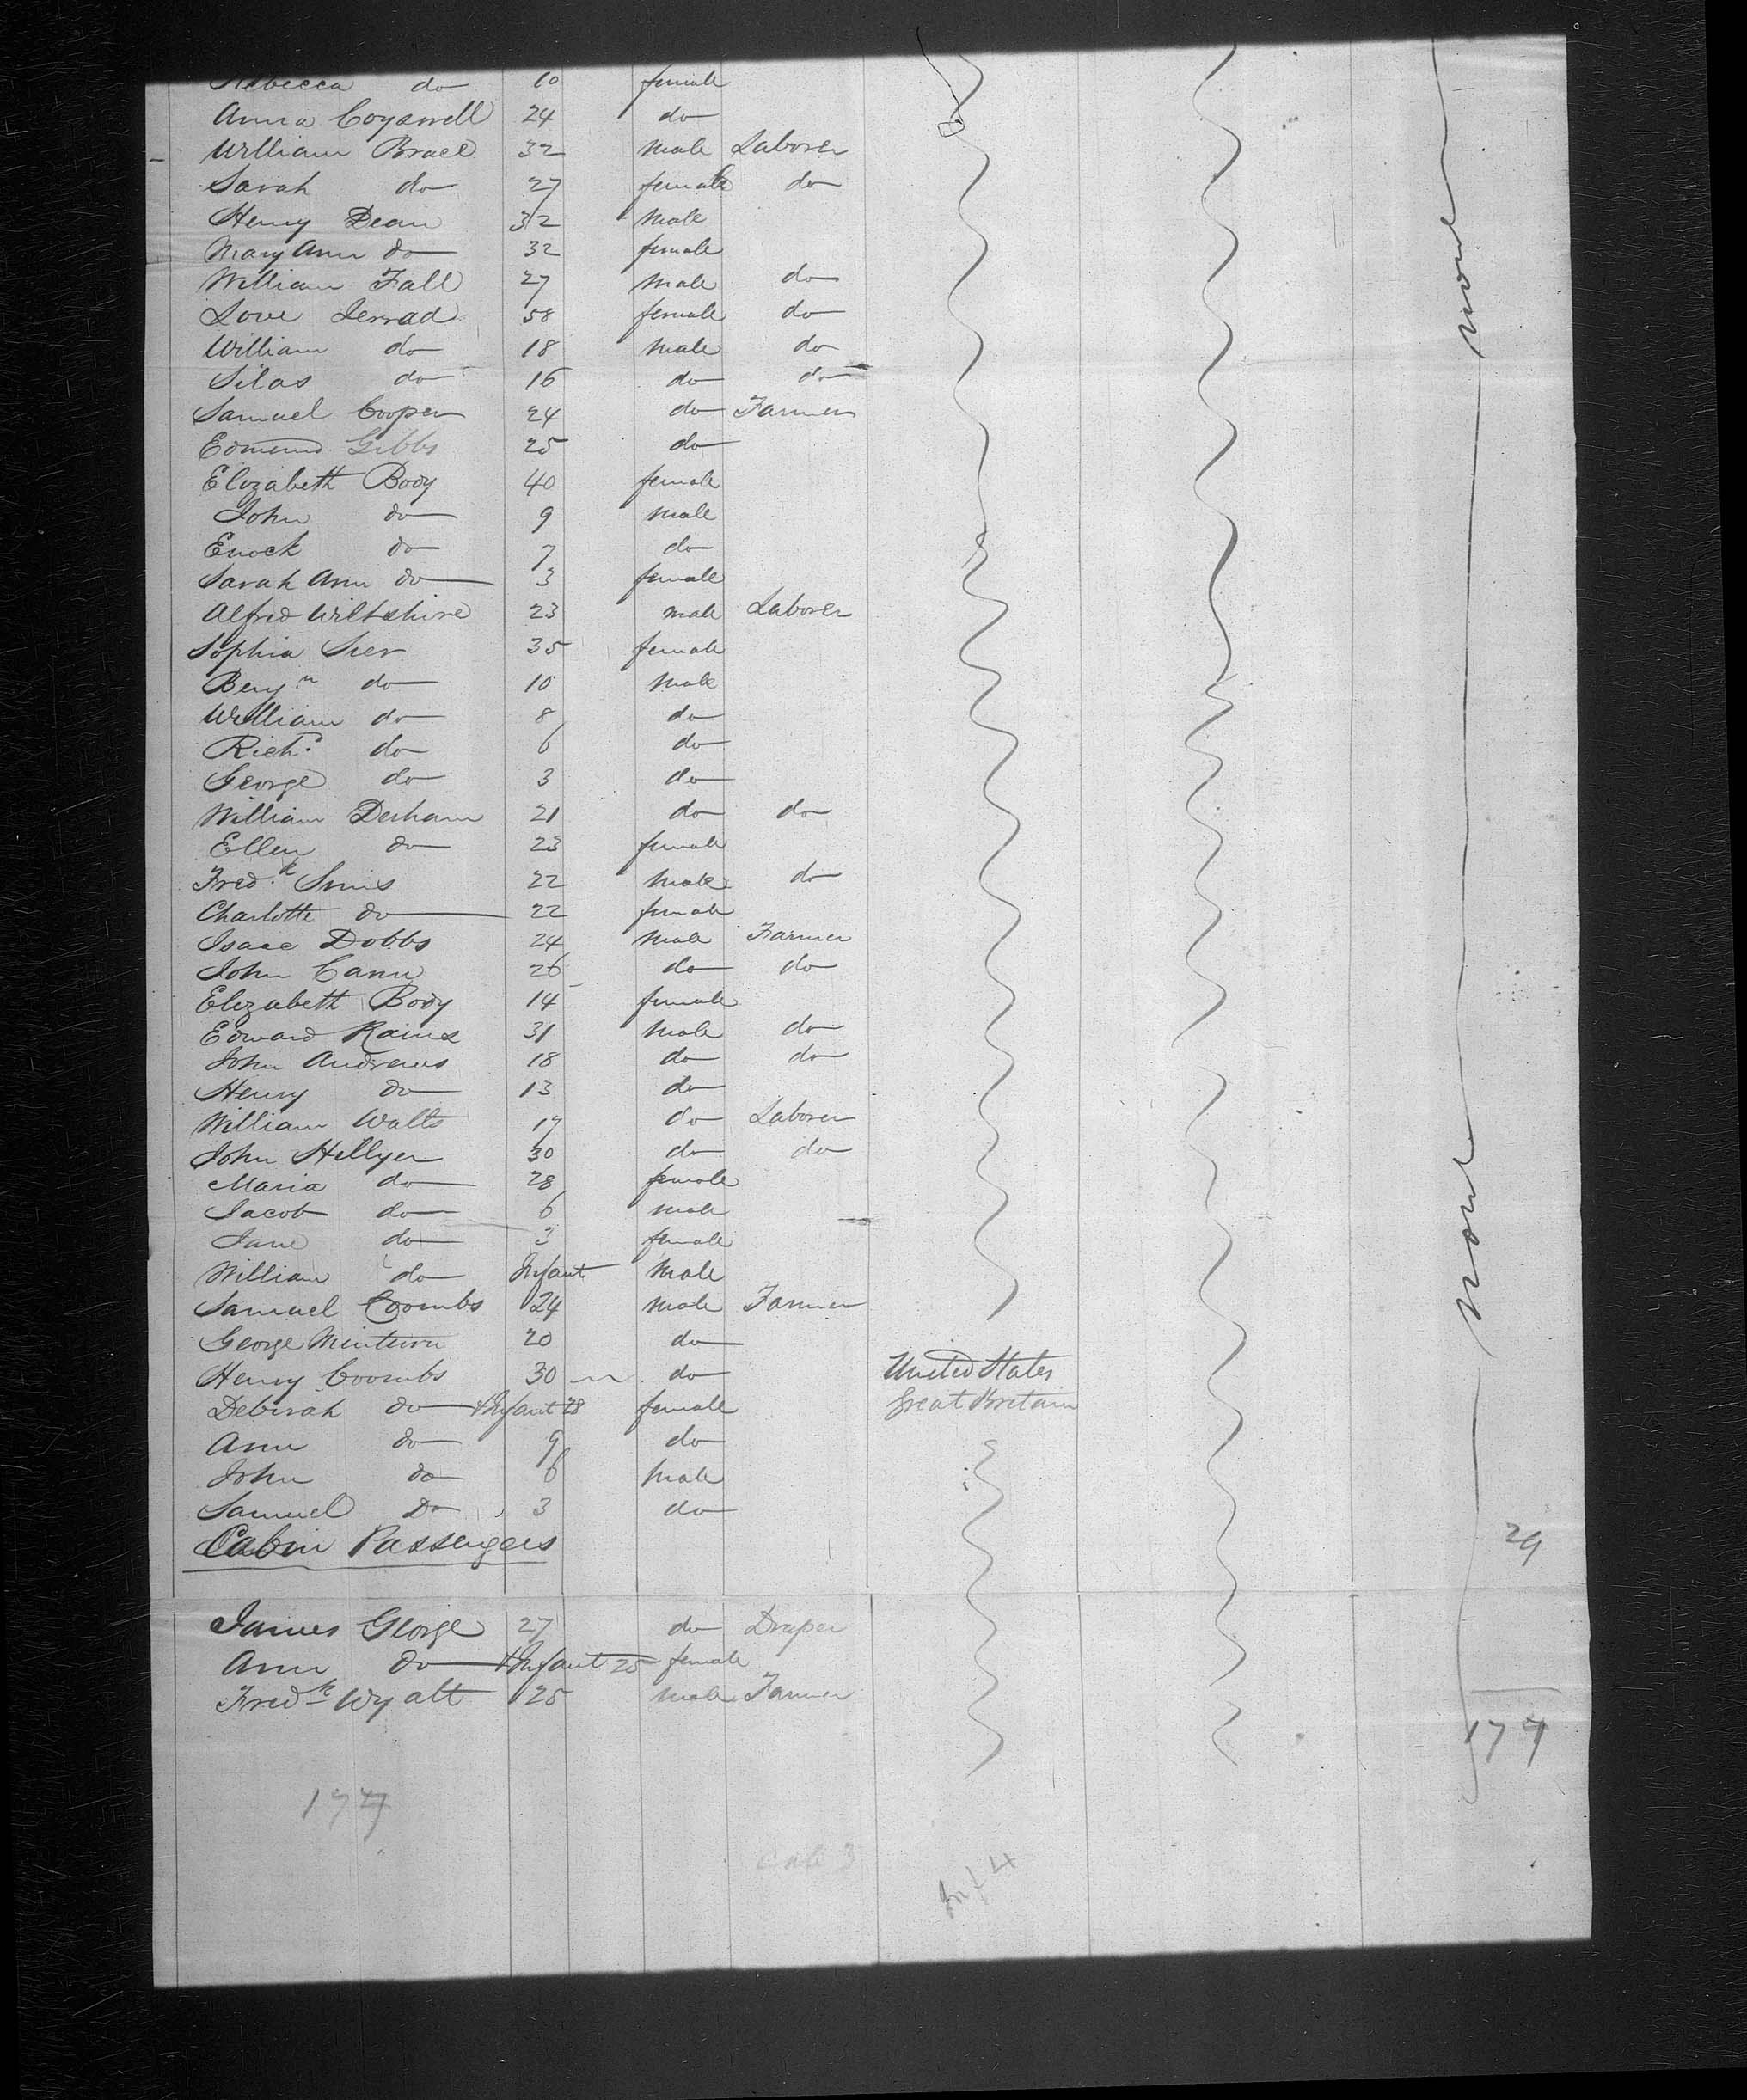 Rebecca do 10 female
Anna Cogswell 24 do
William Brace 32 male Laborer
Sarah do 27 female do
Henry Dean 32 male
Mary Ann do 32 female
William Fall 27 male do
Love Jerrad 58 female do
William do 18 male do
Silas do 16 do do
Samuel Cooper 24 do Farmer
Edmund Gibbs 25 do
Elizabeth Body 40 female
John do 9 male
Enock do 7 do
Sarah Ann do 3 female
Alfred Wiltshire 23 male Laborer
Sophia Sier 35 female
Benjn do 10 male
William do 8 do
Richd do 6 do
George do 3 do
William Derham 21 do do
Ellen do 23 female
Fredk Smis 22 male do
Charlotte do 22 female
Isaac Dobbs 24 male Farmer
John Cann 26 do do
Elizabeth Body 14 female
Edward Rains 31 male do
John Andrews 18 do do
Henry do 13 do
William Watts 17 do Laborer
John Hellyer 30 do do
Maria do 28 female
Jacob do 6 male
Jane do 3 female
William do Infant male
Samuel Coombs 24 male Farmer
George Minturn 20 do
Henry Coombs 30 do United States
Deborah do & Infant 28 female Great Britain
Ann do 9 do
John do 6 male
Samuel Do 3 do
Cabin Passengers
29
James George 27 do Draper
Ann do & Infant 25 female
Fredk Wyatt 25 male Farmer
177
177
Cab 3
Inf 4
None
None